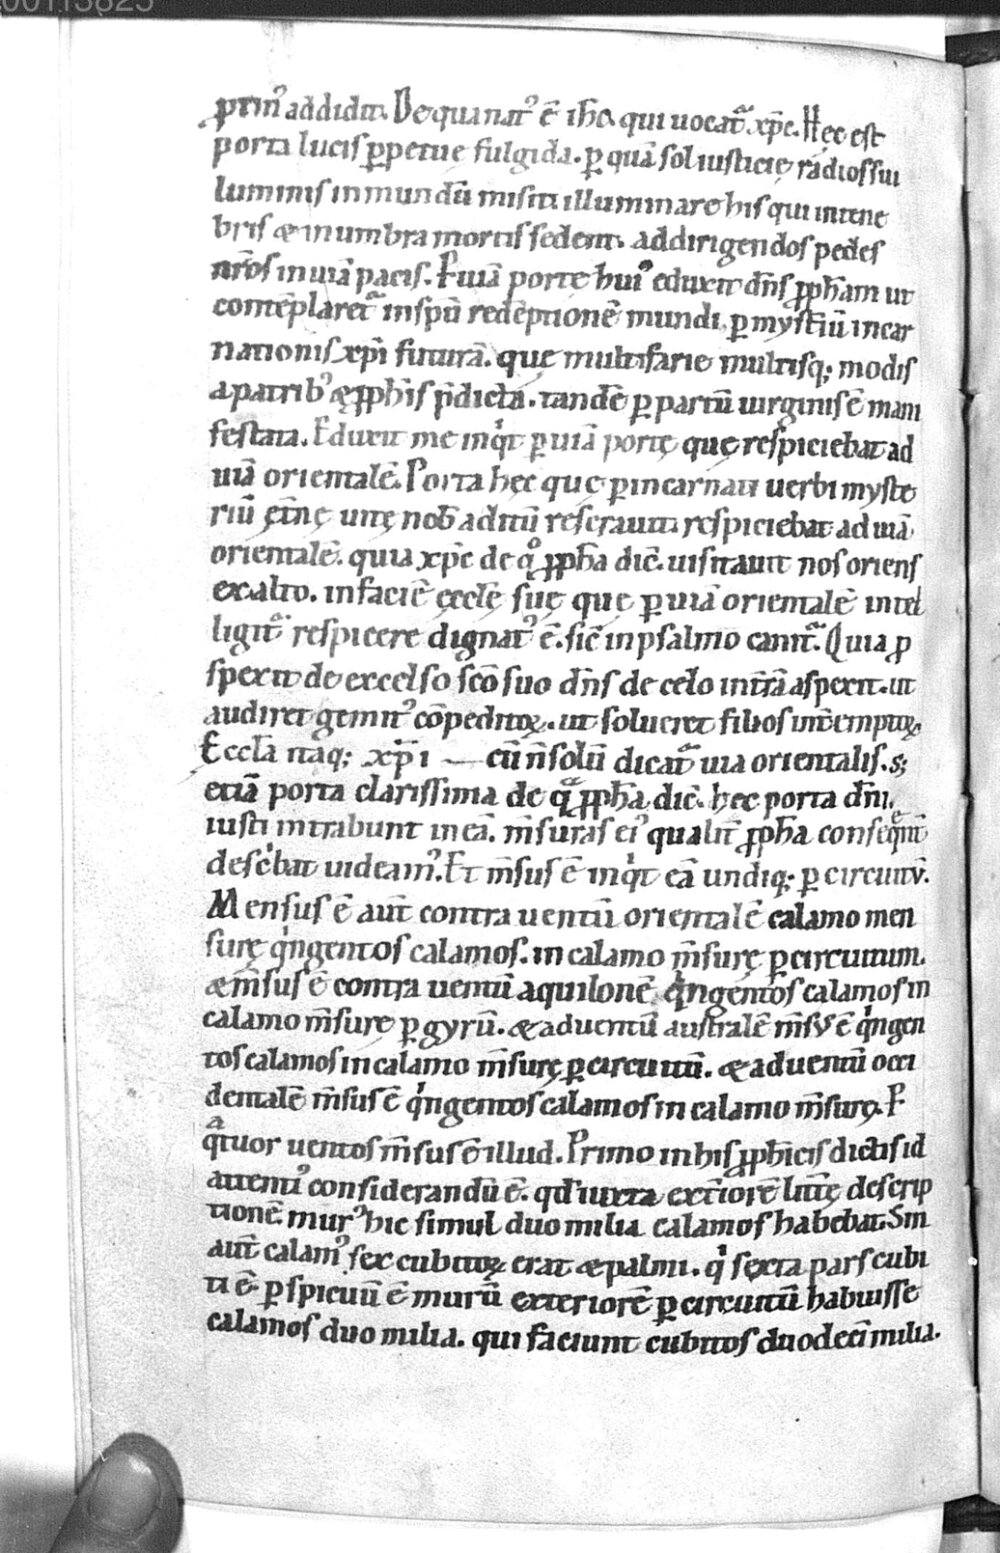 00113823
ꝓtin᷒ addidit. De qua nat᷒ ē ihc̄. qui uocat᷑ xp̄c. Hęc est
porta lucis ꝑpetuę fulgida. ꝑ quā sol iusticię radios sui
luminis in mundū misit illuminare his qui in tene
bris & in umbra mortis sedent. ad dirigendos pedes
nr̄os in uiā pacis. P uiā portę hui᷒ eduxit dn̄s ꝓph̄am ut
contēplaret᷑ in spū redēptionē mundi. ꝑ mysteriū incar
nationis xp̄i futurā. quę multifarie multisq; modis
a patrib᷒ & ꝓph̄is p̄dicta. tandē ꝑ partū uirginis ē mani
festata. Eduxit me inqͥt ꝑ uiā portę quę respiciebat ad
uiā orientalē. Porta hęc quę ꝑ incarnati uerbi myste
riū ęt̄nę uitę nob̄ aditū reserauit. respiciebat ad uiā
orientalē. quia xp̄c de qͦ ꝓph̄a dic̄. uisitauit nos oriens
ex alto. in faciē ęcclę̄ suę quę ꝑ uiā orientalē intel
ligit᷑ respicere dignat᷒ ē. sic̄ in psalmo canit᷑. Quia ꝓ
spexit de excelso sc̄o suo dn̄s de celo in t̄rā aspexit. ut
audiret gemit᷒ cōpeditoꝝ. ut solueret filios int̄emptoꝝ.
Eccl̄a itaq; xp̄i — cū n̄ solū dicat᷑ uia orientalis. s;
etiā porta clarissima de qᷓ ꝓph̄a dic̄. hęc porta dn̄i
iusti intrabunt in eā. m̄suras ei᷒ qualit̄ ꝓph̄a consequent̄
desc̄bat uideam᷒. Et m̄sus ē inqͥt eā undiq; ꝑ circuitū.
Mensus ē aut̄ contra uentū orientalē calamo men
surę qͥngentos calamos. in calamo m̄surę ꝑ circuitum.
& m̄sus ē contra uentū aquilonē qͥngentos calamos in
calamo m̄surę ꝑ gyrū. & ad uentū australē m̄sus ē qͥngen
tos calamos in calamo m̄surę ꝑ circuitū. & ad uentū occi
dentalē m̄sus ē qͥngentos calamos in calamo m̄surę. P
qᷓtuor uentos m̄sus ē illud. Primo in his ꝓph̄icis dictis id
attenti᷒ considerandū ē. qđ iuxta ext̄iorē litt̄ę descrip
tionē. mur᷒ hic simul duo milia calamos habebat. Sin
aut̄ calam᷒ sex cubitoꝝ erat & palmi. qͥ sexta pars cubi
ti ē. ꝑspicuū ē murū exteriorē ꝑ circuitū habuisse
calamos duo milia. qui faciunt cubitos duodecī milia.